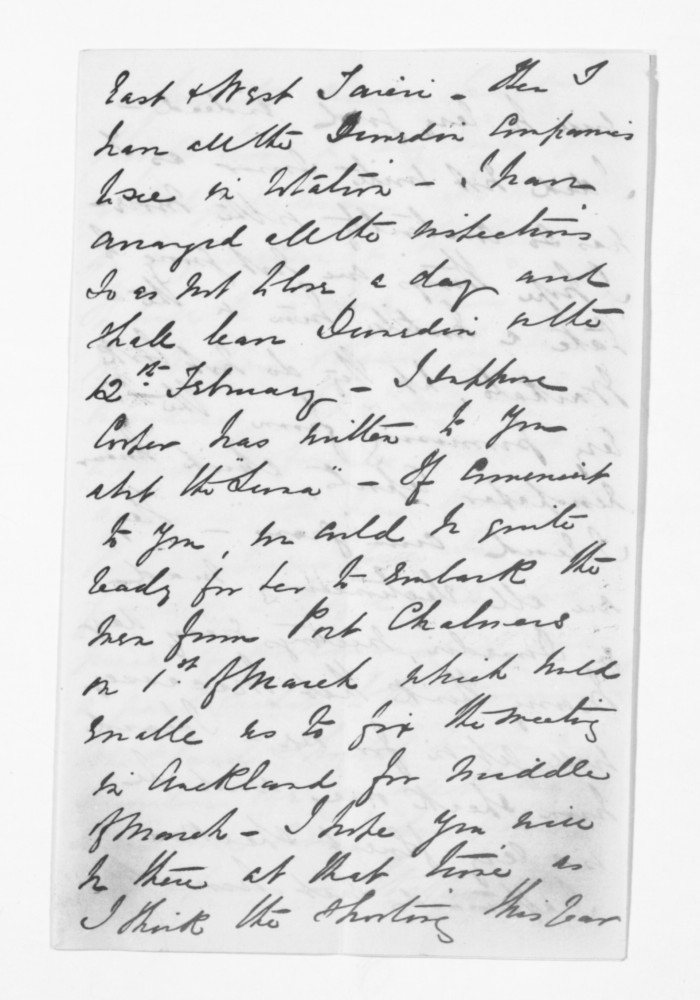 East & West Taieri - then I
have all the Dunedin Companies
to see in rotation - I have
arranged all the inspections
so as not to lose a day and
shall leave Dunedin on the
12th. February - I suppose
has written to you
abt the "Luna" - If convenient
to you, we could be quite
ready for her to embark the
men from Port Chalmers
on 1st. of March which would
enable us to fix the meeting
in Auckland for middle
of March - I hope you will
be there at that time as
I think the shooting this year